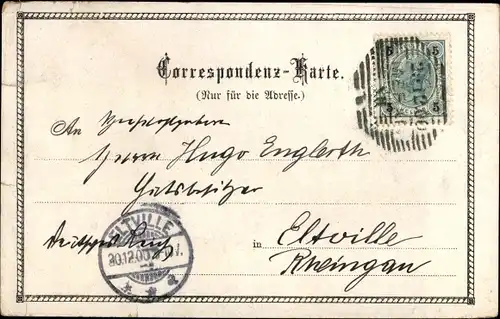 5 5
5 5
Correspondenz-Karte.
(Nur für die Adresse.)
An
Herrn Hugo Englerth
Gutsbesitzer
ELTVILLE
30.12.00
in Eltville
Rheingau